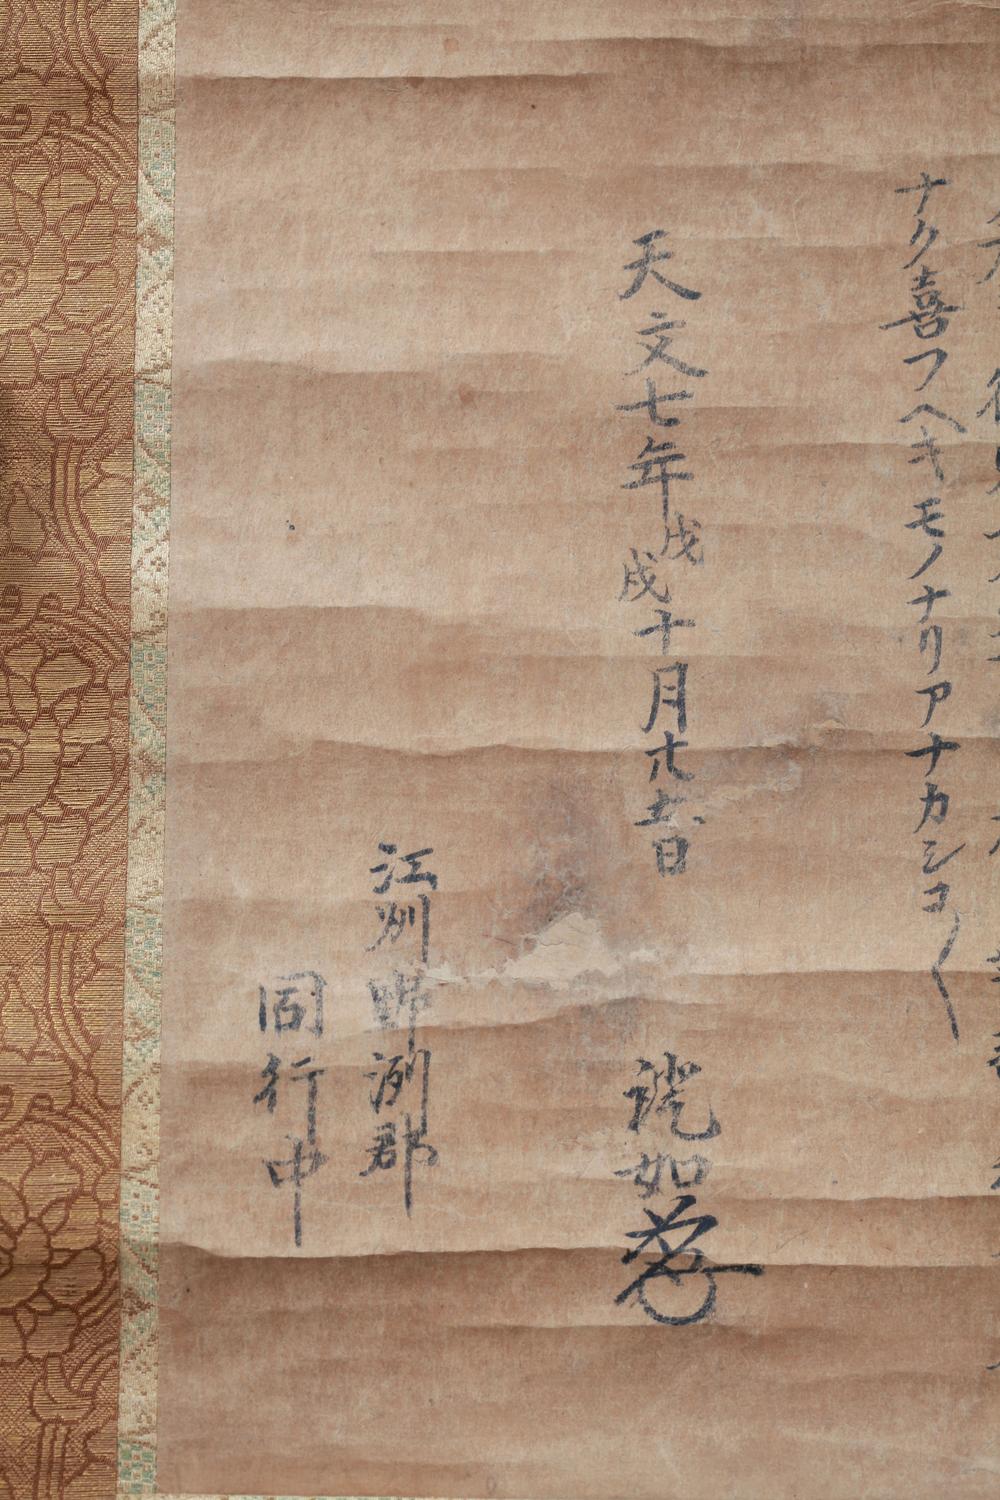 ナク喜フヘキモノナリアナカシコ〱
天文七年戊戌十月廿五日
證如
江州野洲郡
同行中